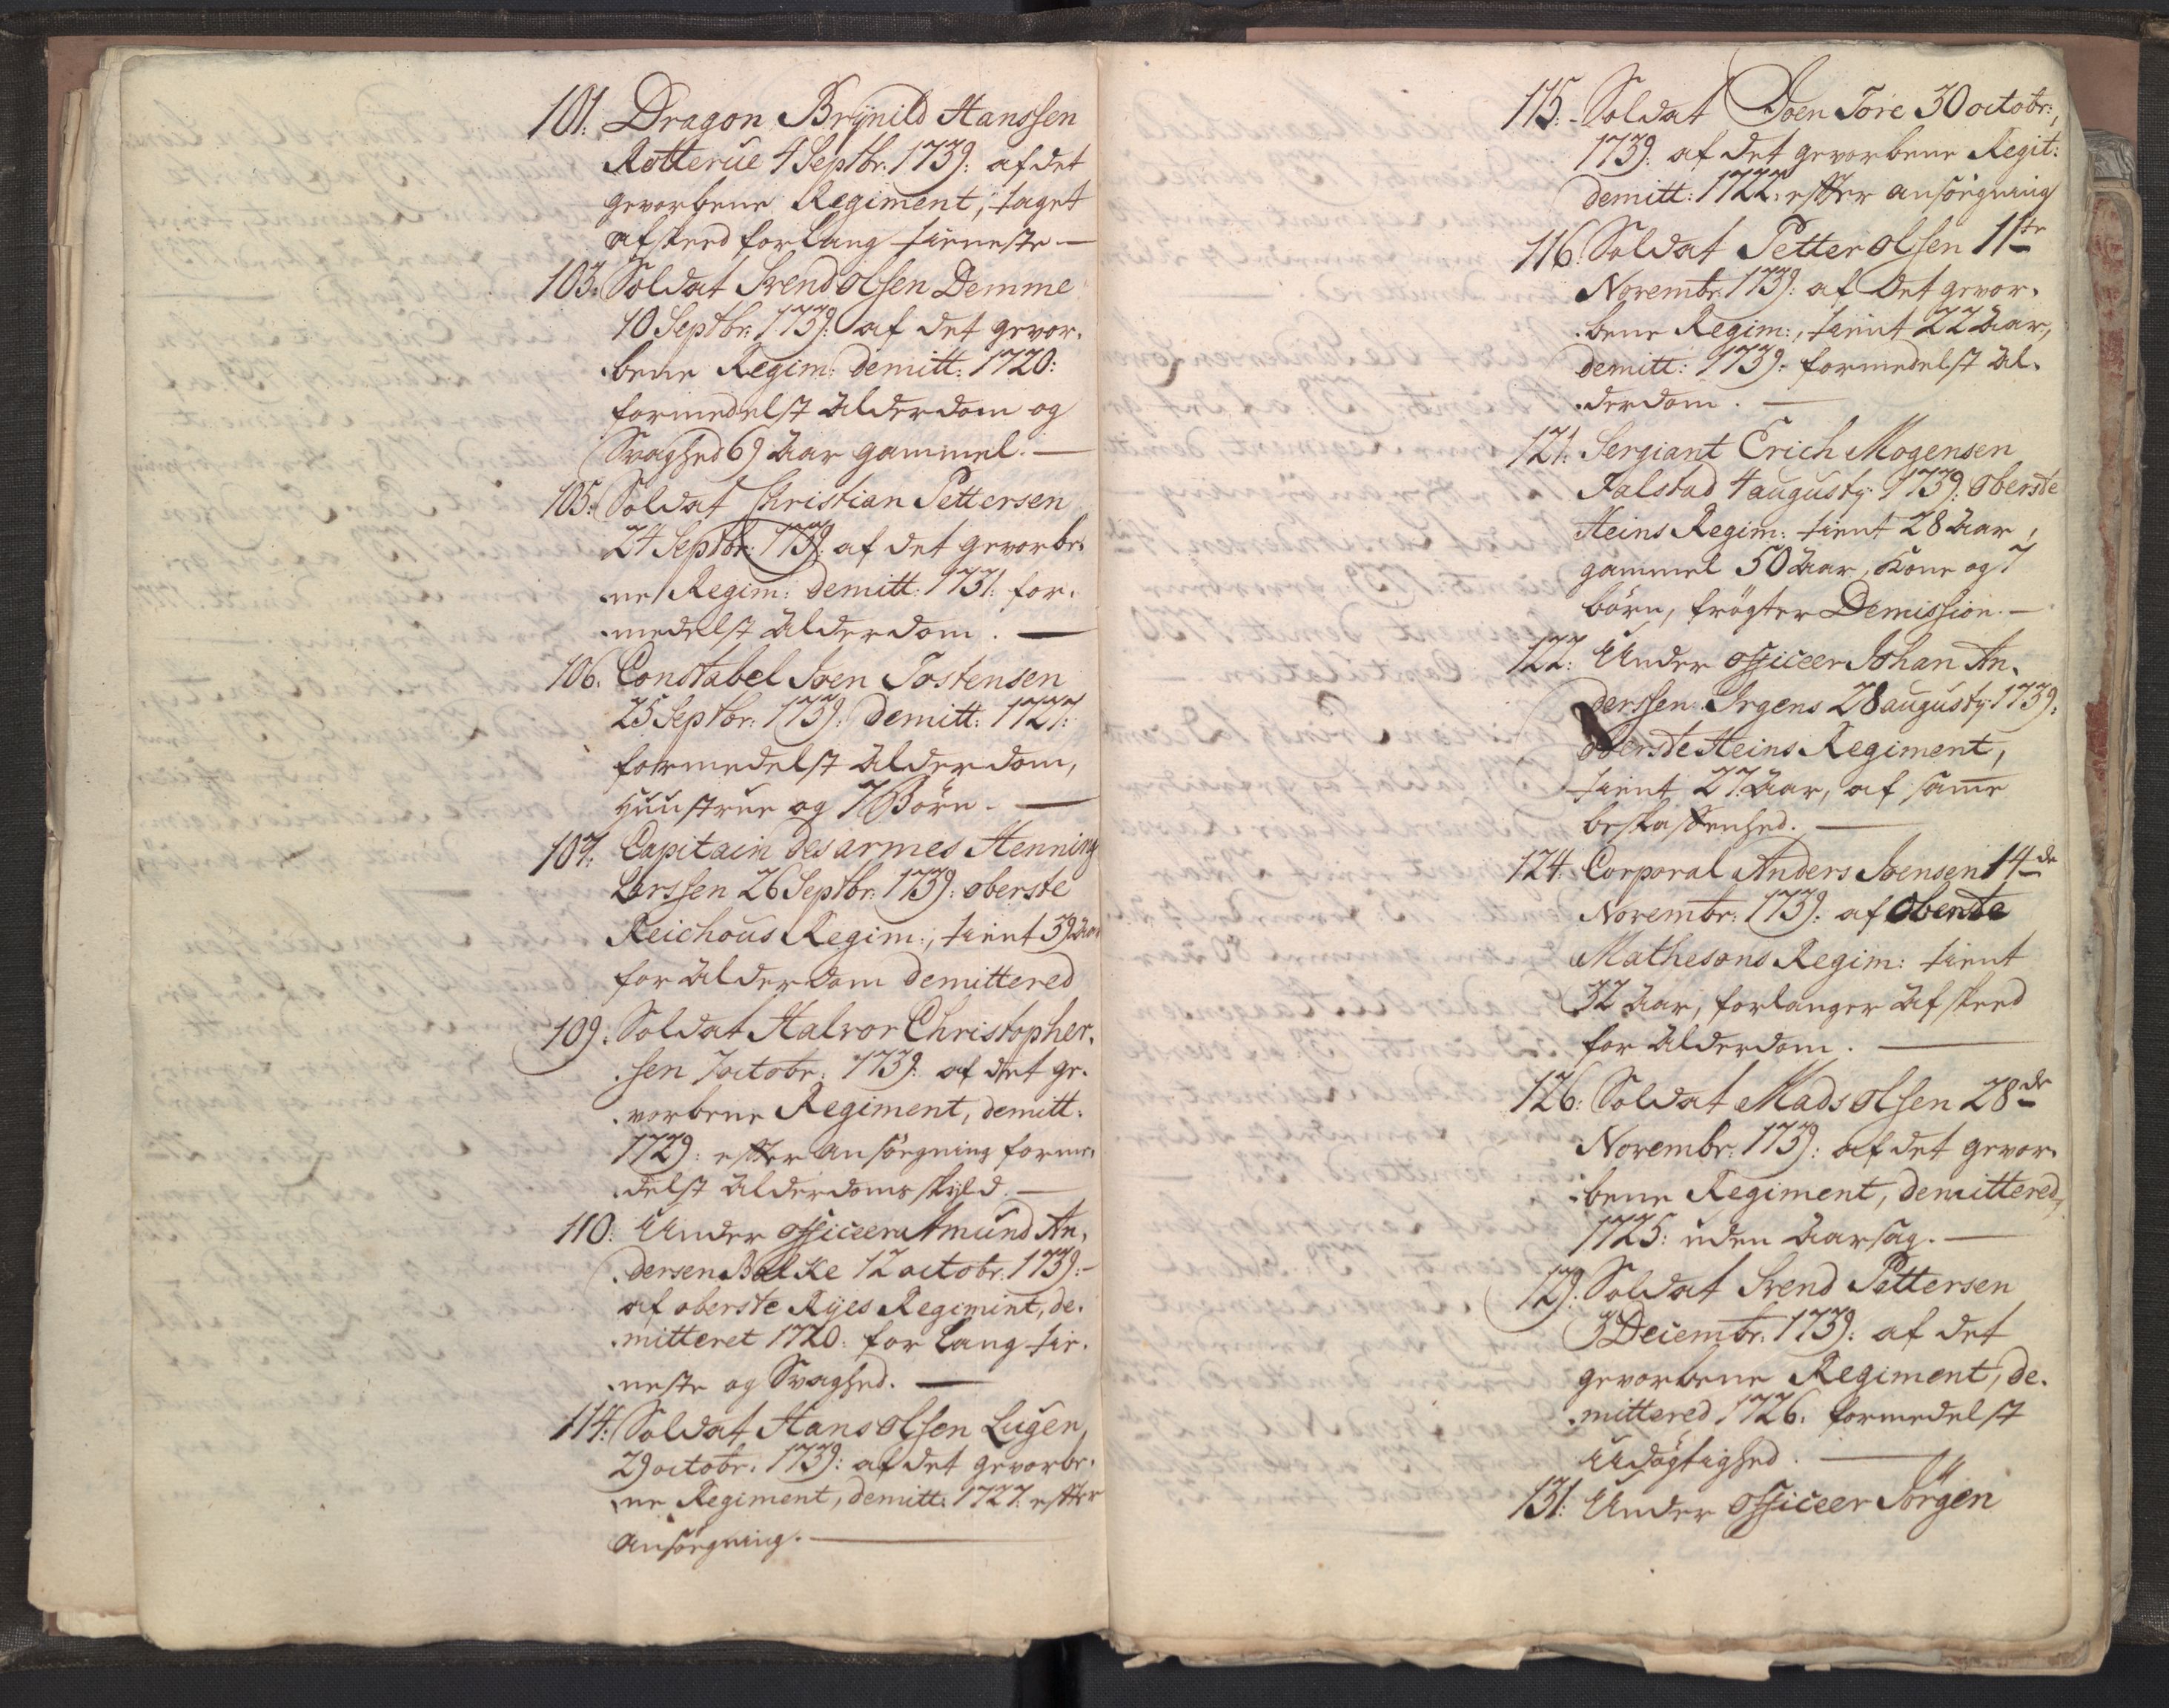 101: Dragon Brÿnild Hanssen
Rotterüe 4 Septbr: 1739: af det
gevorbene Regiment, taget
afskeed for lang tieneste —
103: Soldat Svend olsen Demme
10 Septbr: 1739: af det gevor-
bene Regim: demitt: 1720:
formedelst alderdom og
Svaghed 69 aar gammel. —
105: Soldat Christian Pettersen
24 Septbr: 1739: af det gevorbe-
ne Regim: demitt: 1731: for-
medelst alderdom. —
106. Constabel Iven Tostensen
25 Septbr: 1739: demitt: 1727:
formedelst alderdom,
hüüstrüe og 7 Börn. —
107: Capitain des armes Henning
Larssen 26 Septbr: 1739: oberste
Reichous Regim:, tient 39 aar
for alderdom demittered
109: Soldat Halvor Christopher-
sen 7 octobr: 1739: af det ge-
vorbene Regiment, demitt:
1729: effter ansöegning forme-
delst alderdoms skyld. —
110: Under officeer Amünd An-
dersen Balke 12 octobr: 1739:-
af oberste Rÿes Regimint, de-
mitteret 1720: for lang tie-
neste og Svaghed. —
114: Soldat Hans olsen Lügen
29 octobr: 1739: af det gevorbe-
ne Regiment, demitt: 1727. effter
ansöegning. —
115. Soldat Joen Tore 30 octobr:
1739: af det gevorbene Regit:
demitt: 1722: effter ansöegning
116. Soldat Petter olsen 11te
Novembr: 1739: af det gevor-
bene Regim:, tient 22 aar,
demitt: 1739: formedelst al-
derdom. —
121: Sergiant Erich Mogensen
Falstad 4 augusty 1739: oberste
Heins Regim: tient 28 aar,
gammel 50 aar, Kone og 7
börn, frögter Demission. —
122: Under officeer Johan An-
derssen Irgens 28 augusty 1739:
oberste Heins Regiment,
tient 27 aar, af same
beskaffenhed. —
124. Corporal Anders Ivensen 14de
Novembr: 1739: af oberste
Mathesons Regim: tient
32 aar, forlanger afskeed
for alderdom. —
126: Soldat Mads olsen 28de
Novembr: 1739: af det gevor-
bene Regiment, demittered
1725: uden aarsag. —
129: Soldat Svend Pettersen
3 Decembr: 1739: af det
gevorbene Regiment, de-
mittered 1726. formedelst
Udögtighed. —
131: Under officeer Jörgen